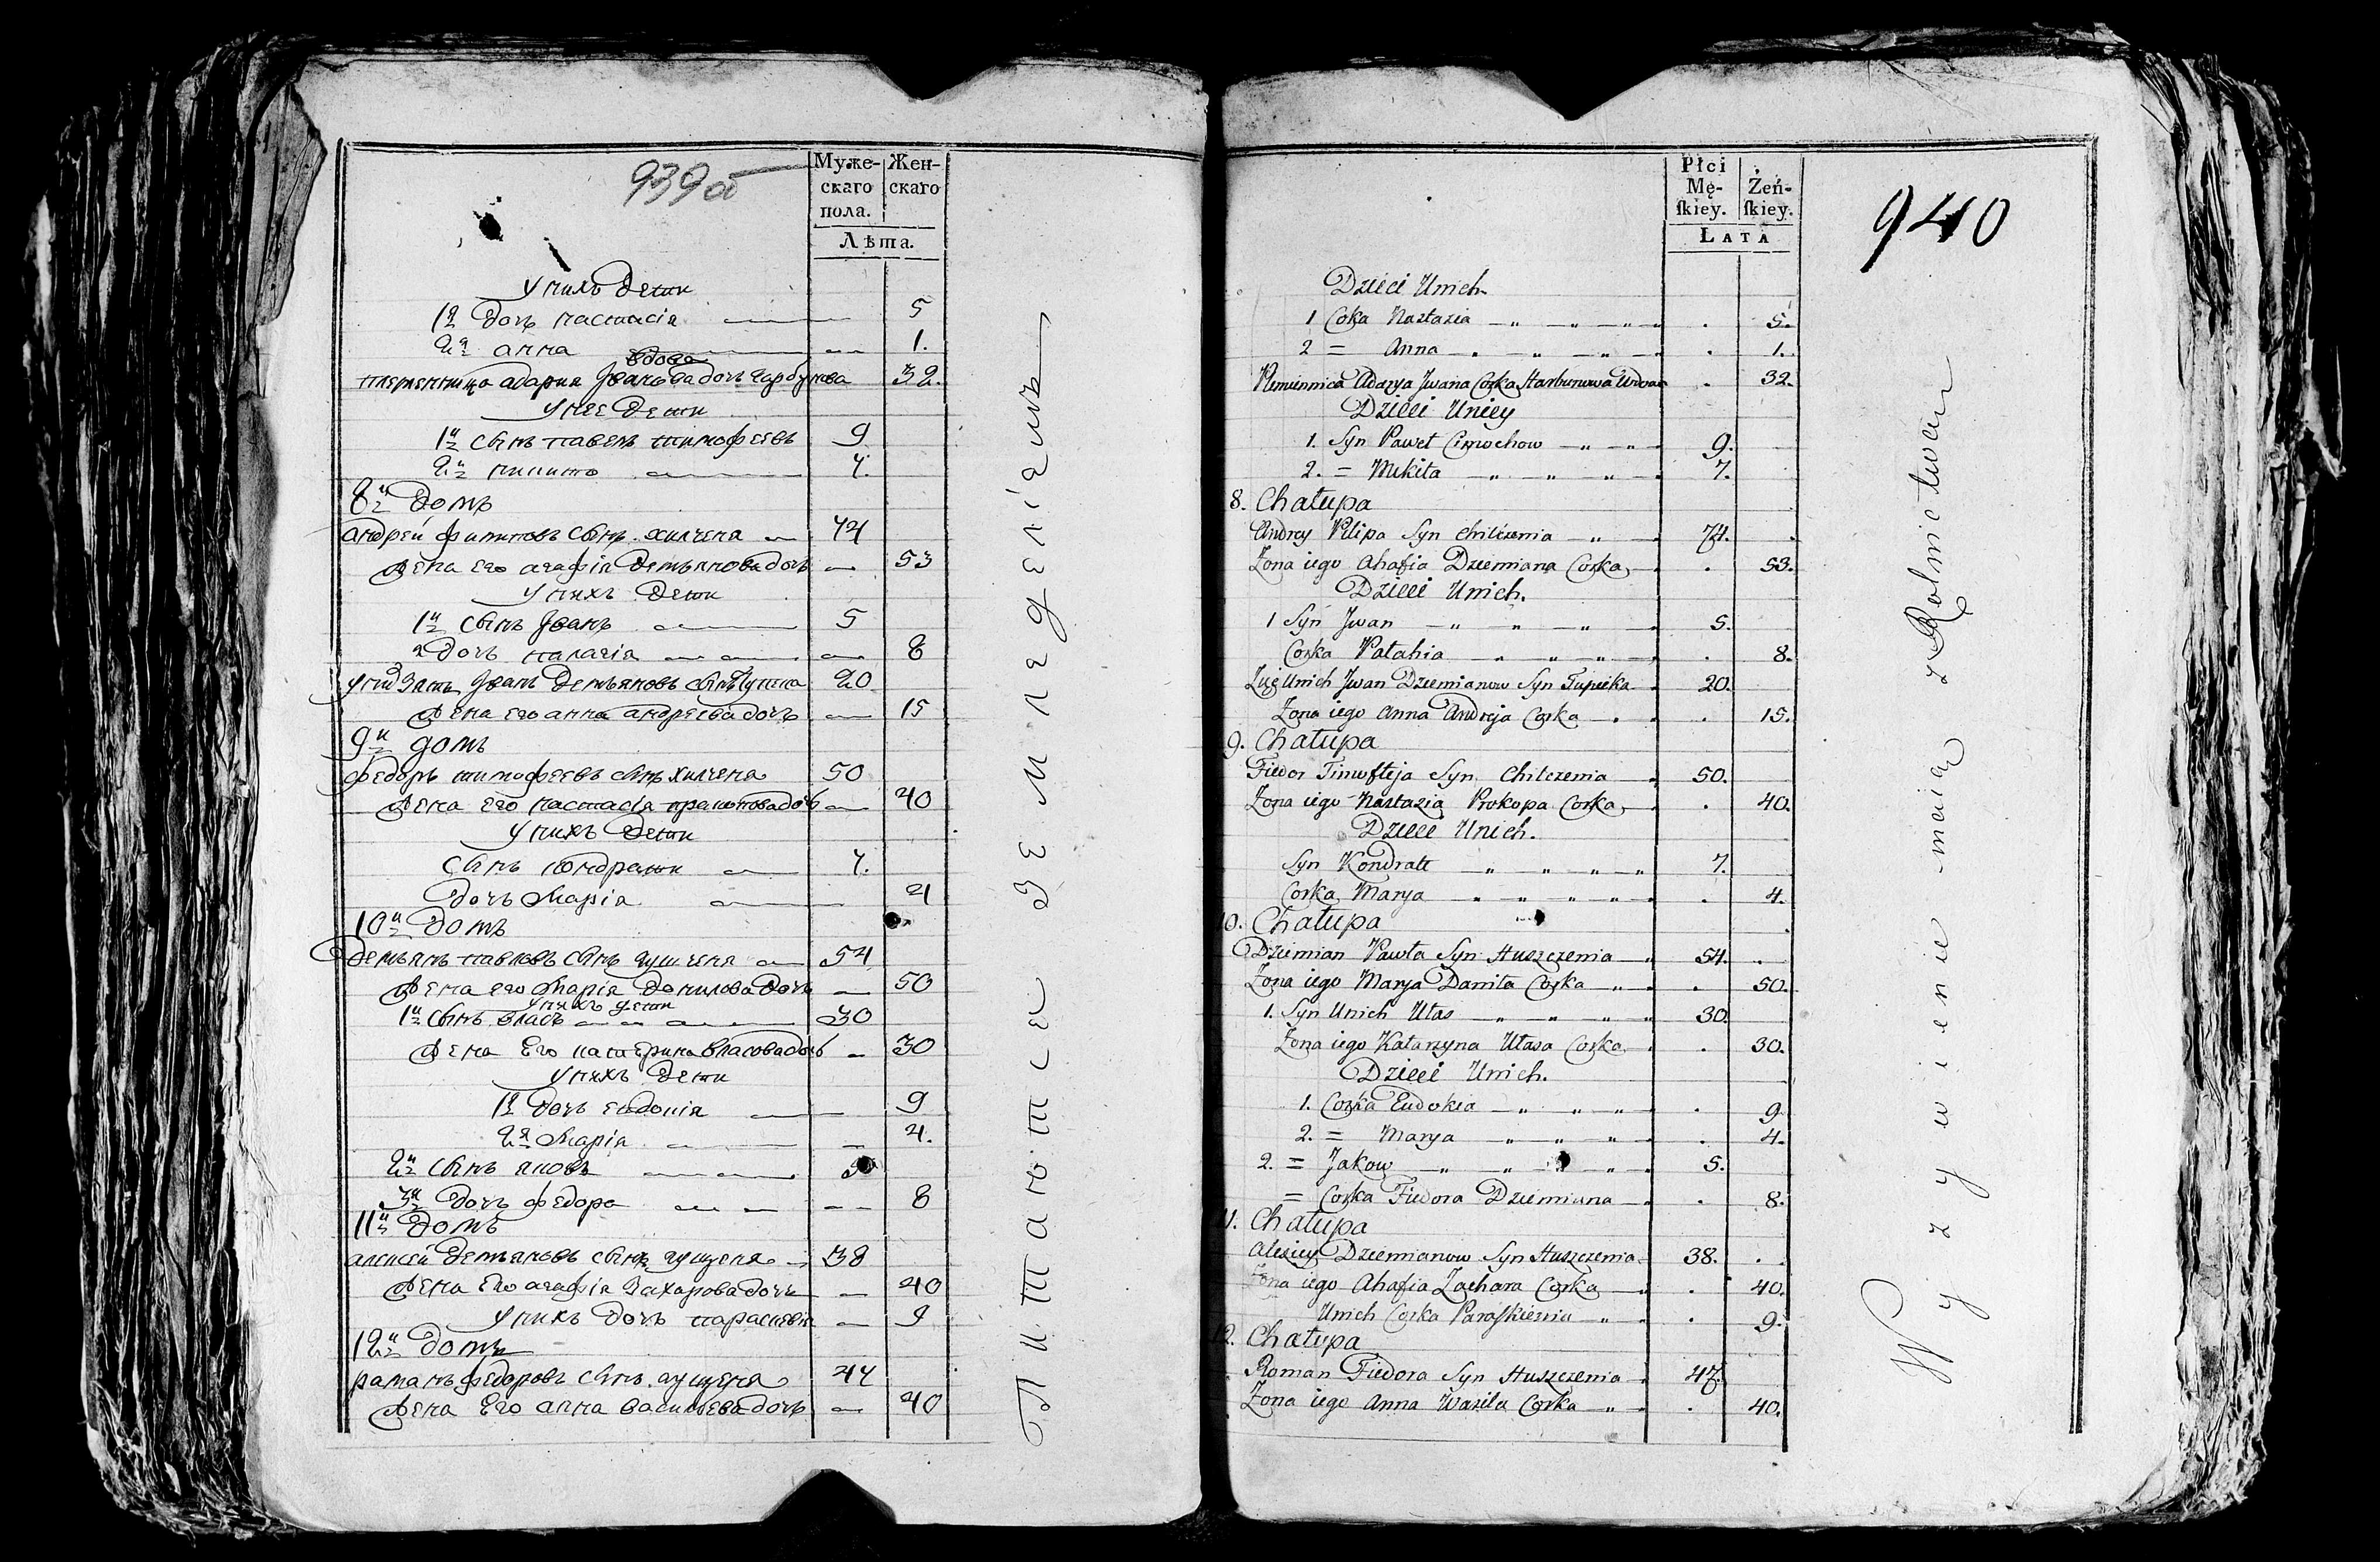 939об
Муже-
скаго
пола.
Жен-
скаго
Лѣта.
У нихъ дети
1я дочь настасіа 5
2я анна 1.
вдова
племенница адария Iванова дочь гарбунова 32.
У нее дети
1й сынъ павелъ тимофеевъ 9
2й никито 7.
8й домъ
андрей филиповъ сынъ хилченя 74
жена его агафіа демьянова дочь 53
У нихъ дети
1й сынъ Iванъ 5
я дочь палагіа 8
у нихъ зять Iванъ демьяновъ сынъ Тупека 20
жена его анна андреева дочь 15
9й домъ
федоръ тимофеевъ сынъ хилченя 50
жена его настасіа пракопова дочь 40
У нихъ дети
сынъ кондрати 7.
дочь Маріа 4
10й домъ
демьянъ павловъ сынъ гушченя 54
жена его Маріа данилова дочь 50
у нихъ дети
1й сынъ власъ 30
жена Его катерина власова дочь 30
У нихъ дети
1я дочь евдокіа 9
2я Маріа 4.
2й сынъ яковъ 5
3я дочь федора 8
11й домъ
алексей демьяновъ сынъ гущеня 38
жена Его агафіа захарова дочь 40
У нихъ дочь параскевіа 9
12й домъ
раманъ федоровъ сынъ гущеня 47
жена Его анна васильева дочь 40
Питаютсе Земледеліемъ
Płci
Mę-
ſkiey.
Żeń-
ſkiey.
LATA
940
Dzieci Unich
1 Coka Nastazia 5.
2 = Anna 1.
Plemiennica Adarya Jwana Corka Harbunowa Wdowa 32.
Dzieci Uniey
1. Syn Paweł Cimochow 9.
2. = Mikita 7.
8. Chałupa
Andrey Pilipa Syn Chilczenia 74.
Zona iego Ahafia Dziemiana Corka 53.
Dzieci Unich.
1 Syn Jwan 5.
Corka Pałahia 8.
Zięć Unich Jwan Dziemianow Syn Tupieka 20.
Zona iego Anna Andreja Corka 15.
9. Chałupa
Fiedor Timofieja Syn Chilczenia 50.
Zona iego Nastazia Prokopa Corka 40.
Dzieci Unich.
Syn Kondratt 7.
Corka Marya 4.
10. Chałupa
Dziemian Pawła Syn Huszczenia 54.
Zona iego Marya Daniła Corka 50.
1. Syn Unich Ułas 30.
Zona iego Katarzyna Ułasa Corka 30.
Dzieci Unich.
1. Corka Eudokia 9
2. = Marya 4.
2. = Jakow 5.
= Corka Fiedora Dziemiana 8.
11. Chałupa
Alexiey Dziemianow Syn Huszczenia 38.
Zona iego Ahafia Zachara Corka 40.
Unich Corka Paraſkiewia 9.
12. Chałupa
Roman Fiedora Syn Huszczenia 47.
Zona iego Anna Wasila Corka 40.
Wyzywienie maią z Rolnictwa